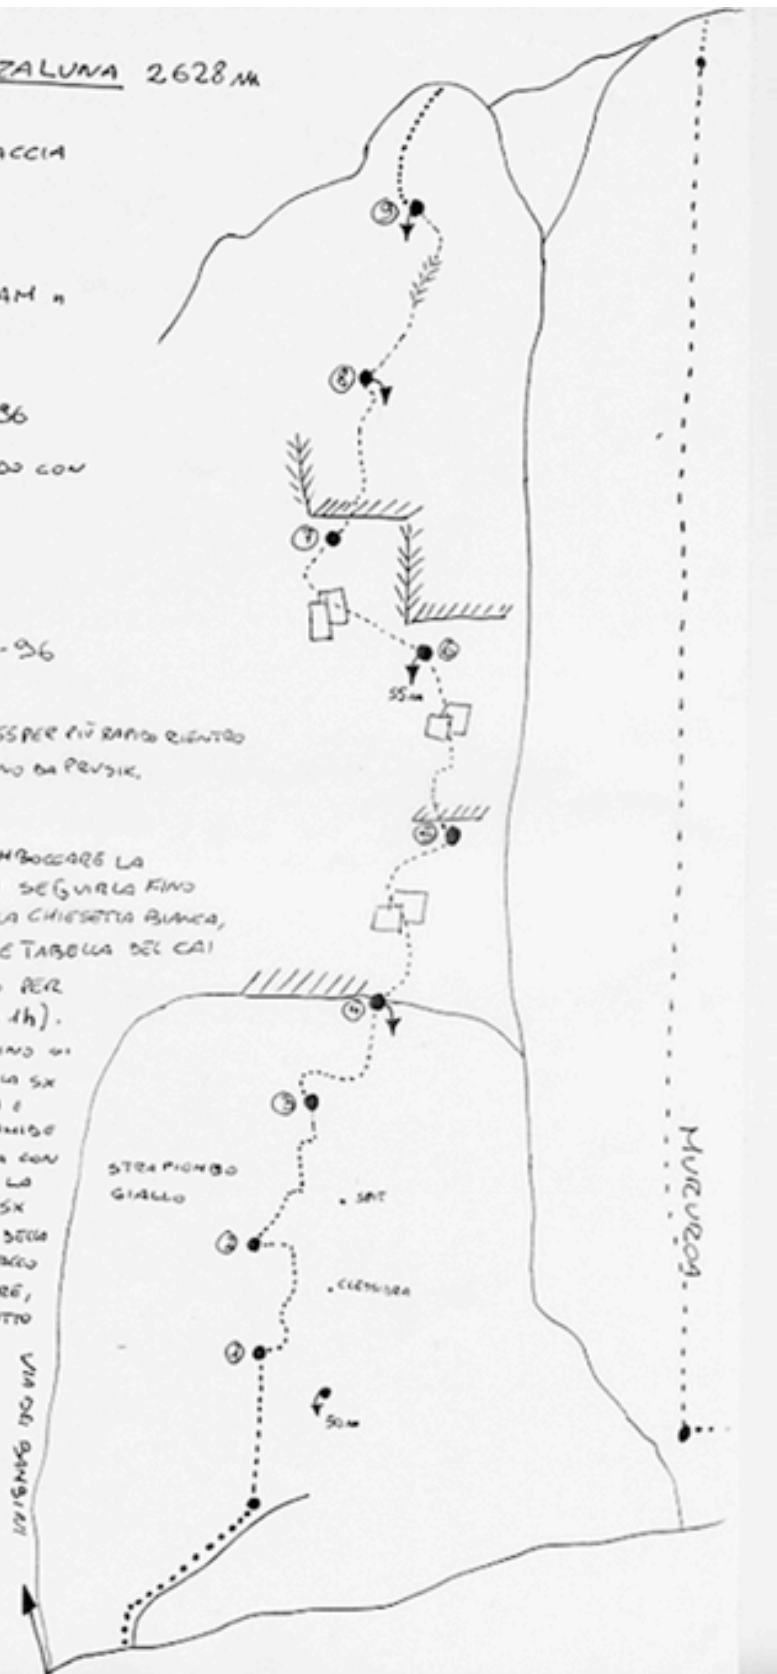 ZALUNA 2628 m
ACCIA
AM n
96
DO CON
-96
PER PIÙ RAPIDO RIENTRO
NO DA PRUSIK.
IMBOCCARE LA
SEGUIRLA FINO
LA CHIESETTA BIANCA,
E TABELLA DEL CAI
PER
1h).
LA SX
E
CON
LA
SX
DELLA
9
8
7
6
55m
5
4
3
STRAPIOMBO
GIALLO
SPIT
2
CLESSIDRA
1
50m
VIA DEI BAMBINI
MURUROA